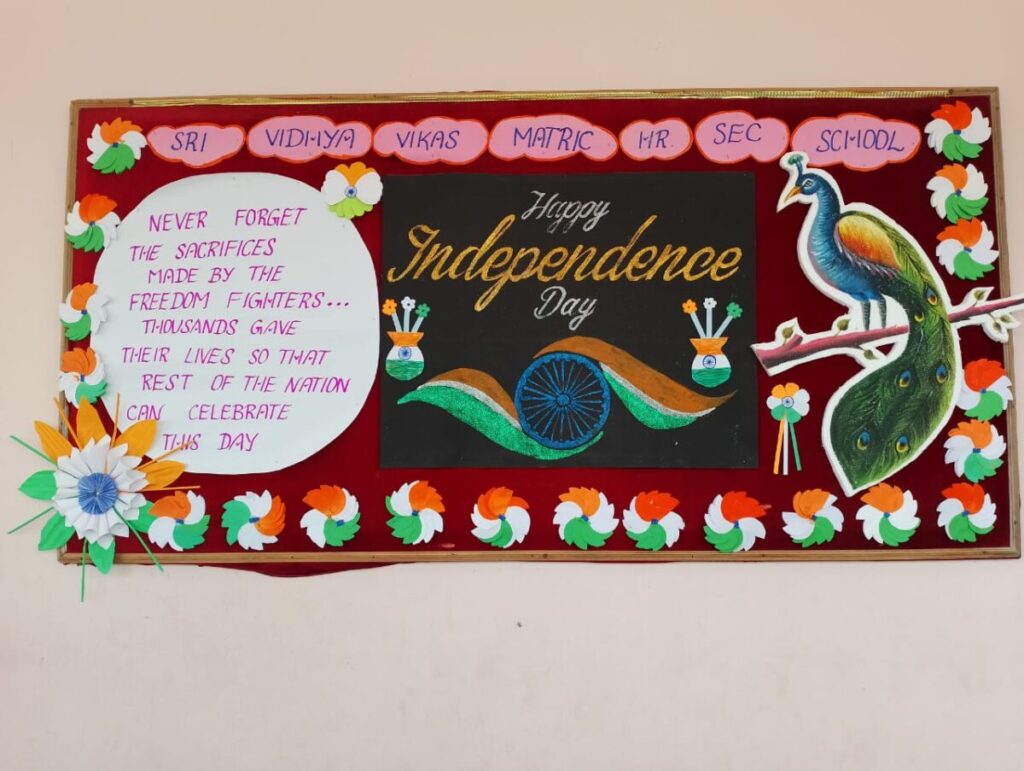 SRI VIDHYA VIKAS MATRIC HR. SEC SCHOOL
NEVER FORGET
THE SACRIFICES
MADE BY THE
FREEDOM FIGHTERS...
THOUSANDS GAVE
THEIR LIVES SO THAT
REST OF THE NATION
CAN CELEBRATE
THIS DAY
Happy
Independence
Day